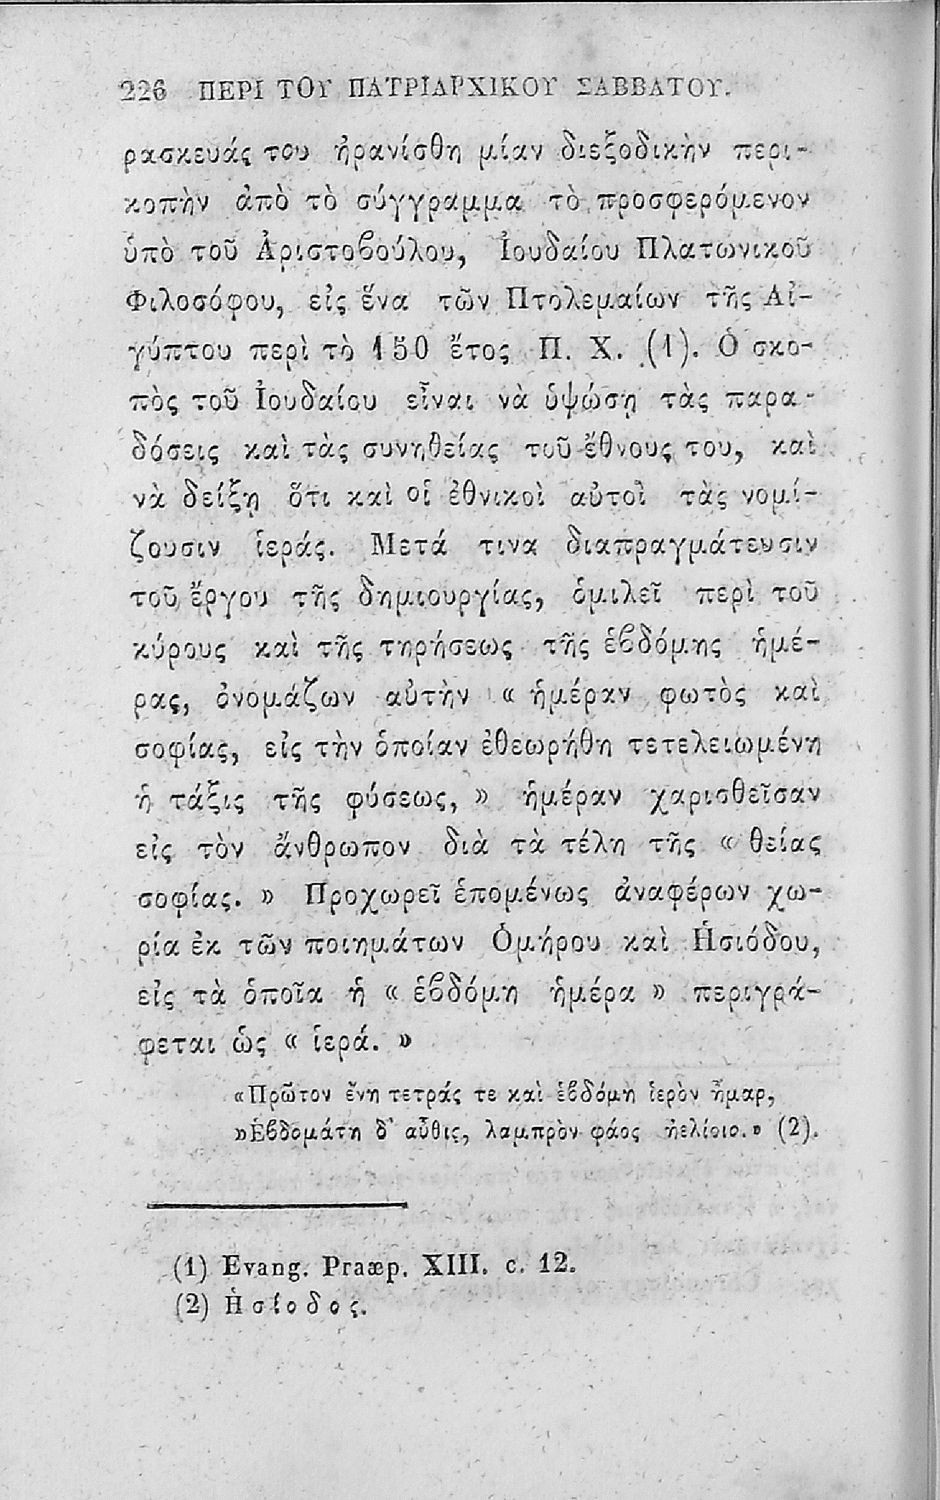 226 ΠΕΡΙ ΤΟΥ ΠΑΤΡΙΑΡΧΙΚΟΥ ΣΑΒΒΑΤΟΥ.
ρασκευάς του ἠρανίσθη μίαν διεξοδικὴν περι-
κοπὴν ἀπὸ τὸ σύγγραμμα τὸ προσφερόμενον
ὑπὸ τοῦ Ἀριστοϐούλου, Ἰουδαίου Πλατωνικοῦ
Φιλοσόφου, εἰς ἕνα τῶν Πτολεμαίων τῆς Αἰ-
γύπτου περὶ τὸ 150 ἔτος Π. Χ. (1). Ὁ σκο-
πὸς τοῦ Ἰουδαίου εἶναι νὰ ὑψώσῃ τὰς παρα-
δόσεις καὶ τὰς συνηθείας τοῦ ἔθνους του, καὶ
νὰ δείξῃ ὅτι καὶ οἱ ἐθνικοὶ αὐτοὶ τὰς νομί-
ζουσιν ἱεράς. Μετά τινα διαπραγμάτευσιν
τοῦ ἔργου τῆς δημιουργίας, ὁμιλεῖ περὶ τοῦ
κύρους καὶ τῆς τηρήσεως τῆς ἑϐδόμης ἡμέ-
ρας, ὀνομάζων αὐτὴν « ἡμέραν φωτὸς καὶ
σοφίας, εἰς τὴν ὁποίαν ἐθεωρήθη τετελειωμένη
ἡ τάξις τῆς φύσεως, » ἡμέραν χαρισθεῖσαν
εἰς τὸν ἄνθρωπον διὰ τὰ τέλη τῆς « θείας
σοφίας. » Προχωρεῖ ἑπομένως ἀναφέρων χω-
ρία ἐκ τῶν ποιημάτων Ὁμήρου καὶ Ἡσιόδου,
εἰς τὰ ὁποῖα ἡ « ἑϐδόμη ἡμέρα » περιγρά-
φεται ὡς « ἱερά. »
«Πρῶτον ἔνη τετράς τε καὶ ἑϐδόμη ἱερὸν ἦμαρ,
»Ἑϐδομάτη δ' αὖθις, λαμπρὸν φάος ἠελίοιο.» (2).
(1) Evang. Praæp. XIII. c. 12.
(2) Ἡσίοδος.